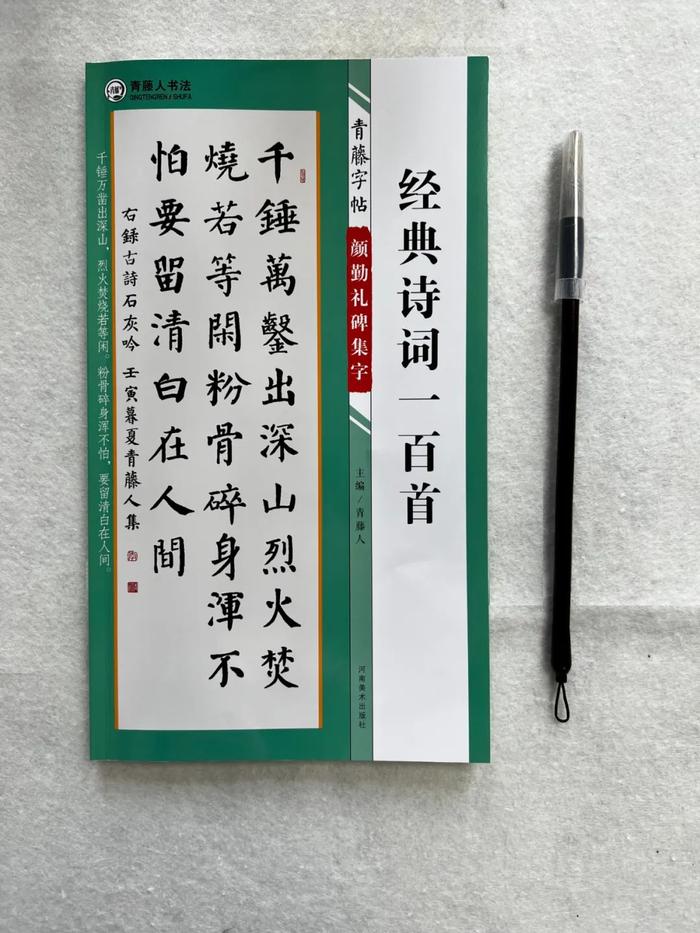 经典诗词一百首
青藤字帖
颜勤礼碑集字
主编/青藤人
河南美术出版社
青藤人书法
QINGTENGREN / SHUFA
千錘萬鑿出深山烈火焚
燒若等閑粉骨碎身渾不
怕要留清白在人間
右録古詩石灰吟 壬寅暮夏青藤人集
千锤万凿出深山，烈火焚烧若等闲。粉骨碎身浑不怕，要留清白在人间。